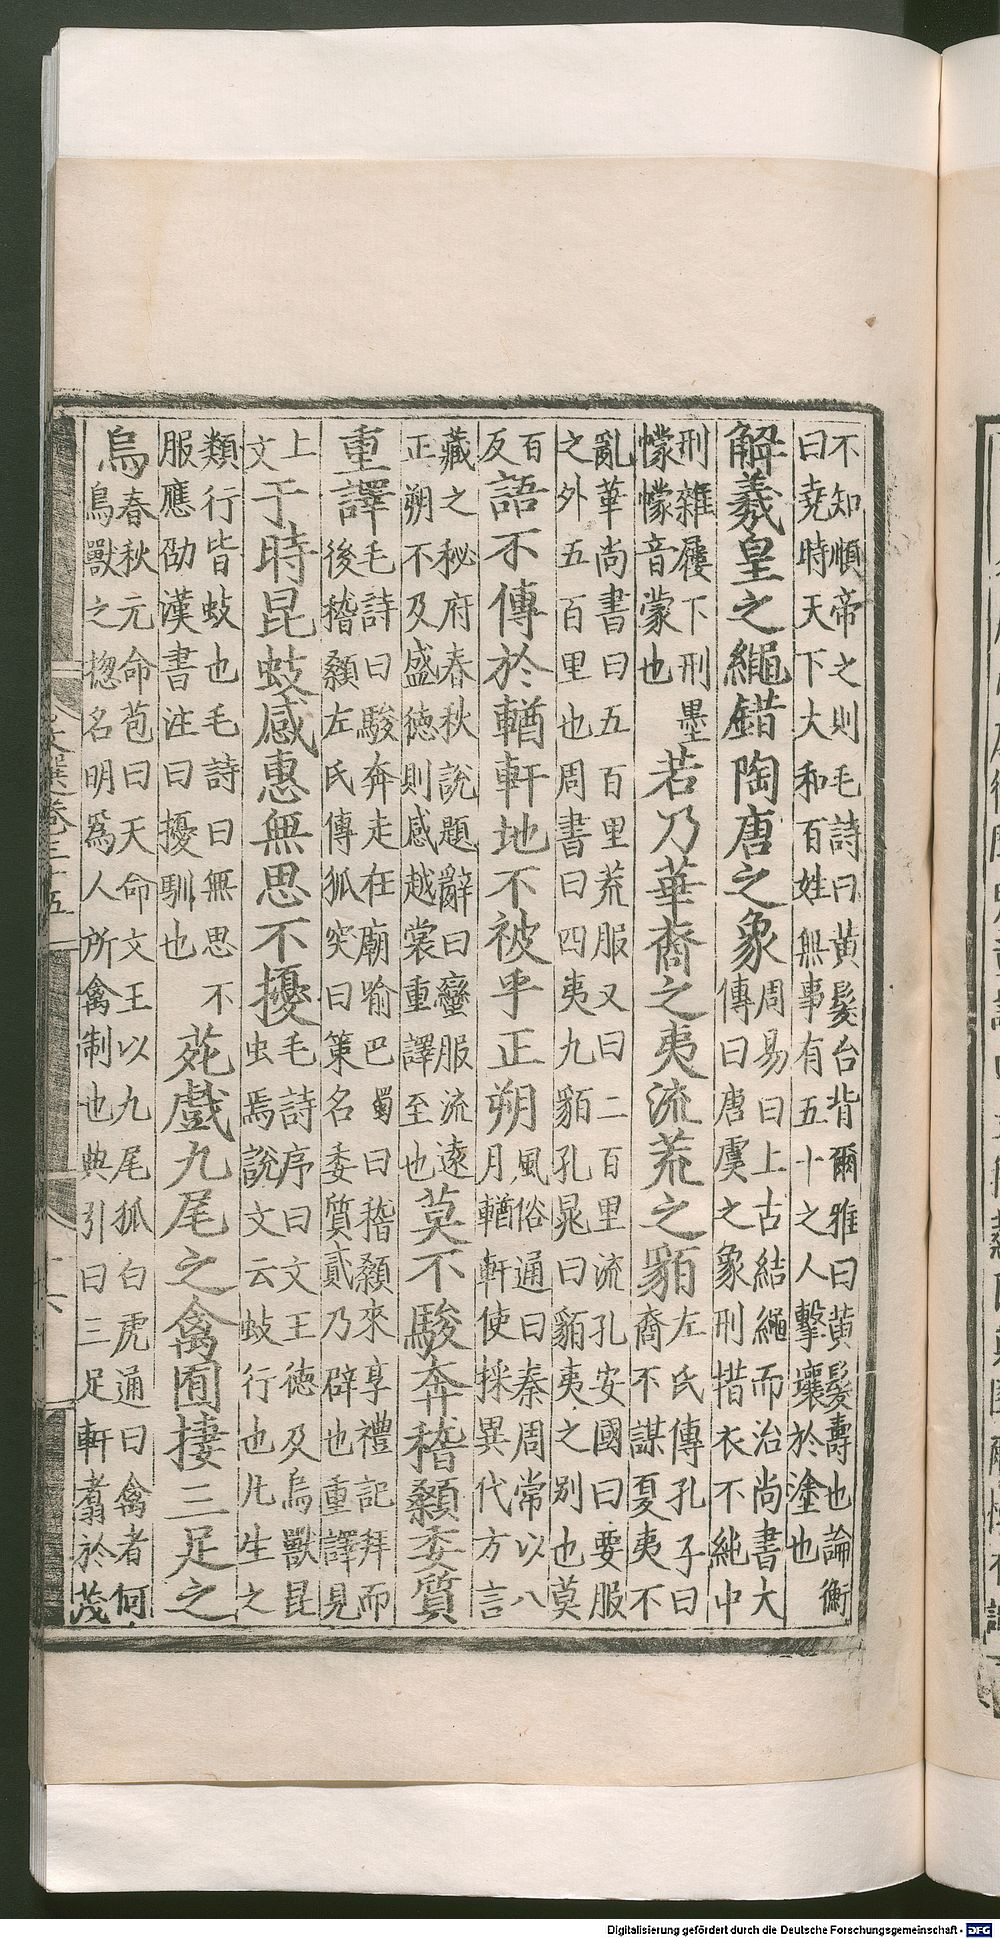 不知順帝之則毛詩曰黃髮台背爾雅曰黃髮壽也論衡
曰堯時天下大和百姓無事有五十之人擊壤於塗也
解羲皇之繩錯陶唐之象
周易曰上古結繩而治尚書大
傳曰唐虞之象刑措衣不純中
刑雜屨下刑墨
幪幪音蒙也
若乃華裔之夷流荒之貊
左氏傳孔子曰
裔不謀夏夷不
亂華尚書曰五百里荒服又曰二百里流孔安國曰要服
之外五百里也周書曰四夷九貊孔晁曰貊夷之別也莫
百
反
語不傳於輶軒地不被乎正朔
風俗通曰秦周常以八
月輶軒使採異代方言
藏之秘府春秋說題辭曰蠻服流遠
正朔不及盛德則感越裳重譯至也
莫不駿奔稽顙委質
重譯
毛詩曰駿奔走在廟喻巴蜀曰稽顙來享禮記拜而
後稽顙左氏傳狐突曰策名委質貳乃辟也重譯見
上
文
于時昆蚑感惠無思不擾
毛詩序曰文王德及鳥獸昆
虫焉說文云蚑行也凡生之
類行皆蚑也毛詩曰無思不
服應劭漢書注曰擾馴也
苑戲九尾之禽囿棲三足之
烏
春秋元命苞曰天命文王以九尾狐白虎通曰禽者何
鳥獸之揔名明為人所禽制也典引曰三足軒翥於茂
文選卷三十五
Digitalisierung gefördert durch die Deutsche Forschungsgemeinschaft - DFG